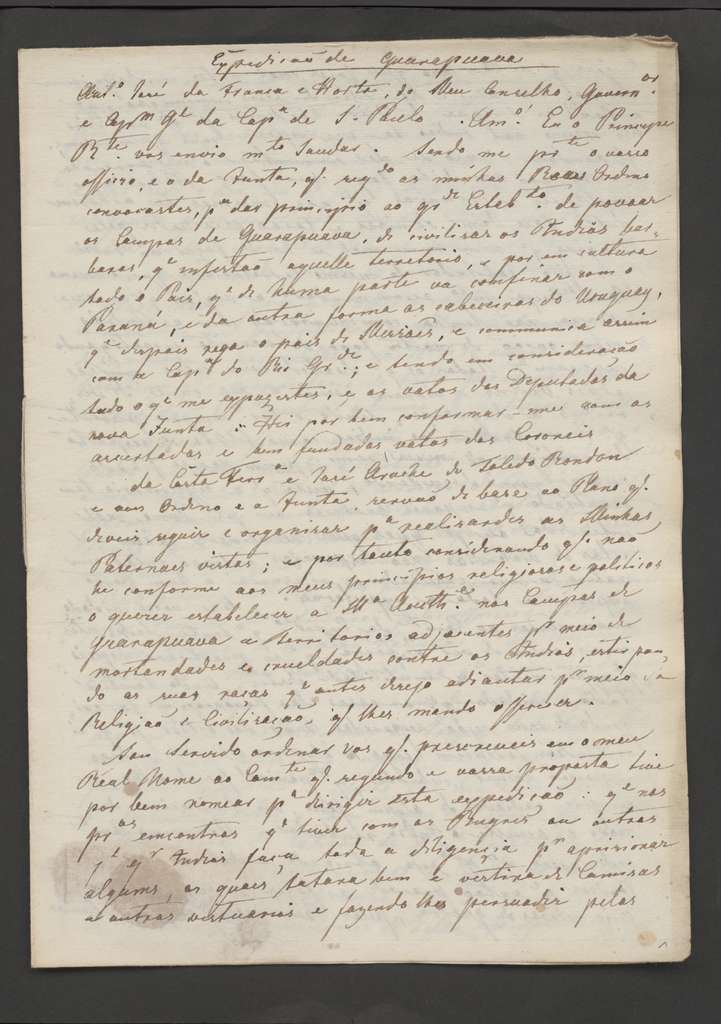 Expedicaõ de Guarapuava
Antº José da Franca e Horta, do Meu Conselho, Governºr
e Capᵐ Gᵃˡ da Capⁿⁱᵃ de S. Paulo. Amº. Eu o Principe
Rᵗᵉ. vos envio mᵗᵒ Saudar. Sendo me prᵗᵉ o vosso
officio, e o da Junta, q̃. segᵈᵒ as minhas Reaes Ordens
convocastes, pᵃ dar principio ao grᵈᵉ Estabᵗᵒ. de povoar
os Campos de Guarapuava, de civilisar os Indios bar-
baros, qᵉ infestaõ aquelle territorio, e por em cultura
todo o Paiz, qᵉ de huma parte va confinar com o
Paraná, e da outra forma as cabeceiras do Uruguay,
qᵉ depois rega o paiz de Missoes, e communica assim
com a Capⁿⁱᵃ do Rio Grᵈᵉ; e tendo em consideração
tudo o qᵉ me expozestes, e os votos dos Deputados da
nova Junta: Fis por bem conformar-me com os
acertados e bem fundados votos dos Coroneis
da Costa Ferrᵃ e José Arouche de Toledo Rondon
e vos Ordeno e a Junta, servaõ de base ao Plano q̃.
deveis seguir e organisar pᵃ realisardes as Minhas
Paternaes vistas; e por tanto considerando q̃. naõ
he conforme aos meus principios religiosos e politicos
o querer estabelecer a Mᵃ Authᵉ. nos Campos de
Guarapuava e territorios adjacentes pʳ meio de
mortandades e crueldades contra os Indios, extirpan-
do as suas raças qᵉ antes desejo adiantar pʳ meio da
Religiaõ e Civilisação, q̃ lhes mando offerecer.
Sou Servido ordenar vos q̃. prescreveis em o meu
Real Nome ao Comᵗᵉ q̃. segundo e vossa proposta tive
por bem nomear pᵃ dirigir esta expedição: qᵉ nos
prᵒˢ encontros qᵉ tiver com os Bugres ou outros
Indios faça toda a diligencia pʳ aprisionar
alguns, os quaes tratara bem e vestira de Camisas
e outros vestuarios e fazendo lhes persuadir pelos